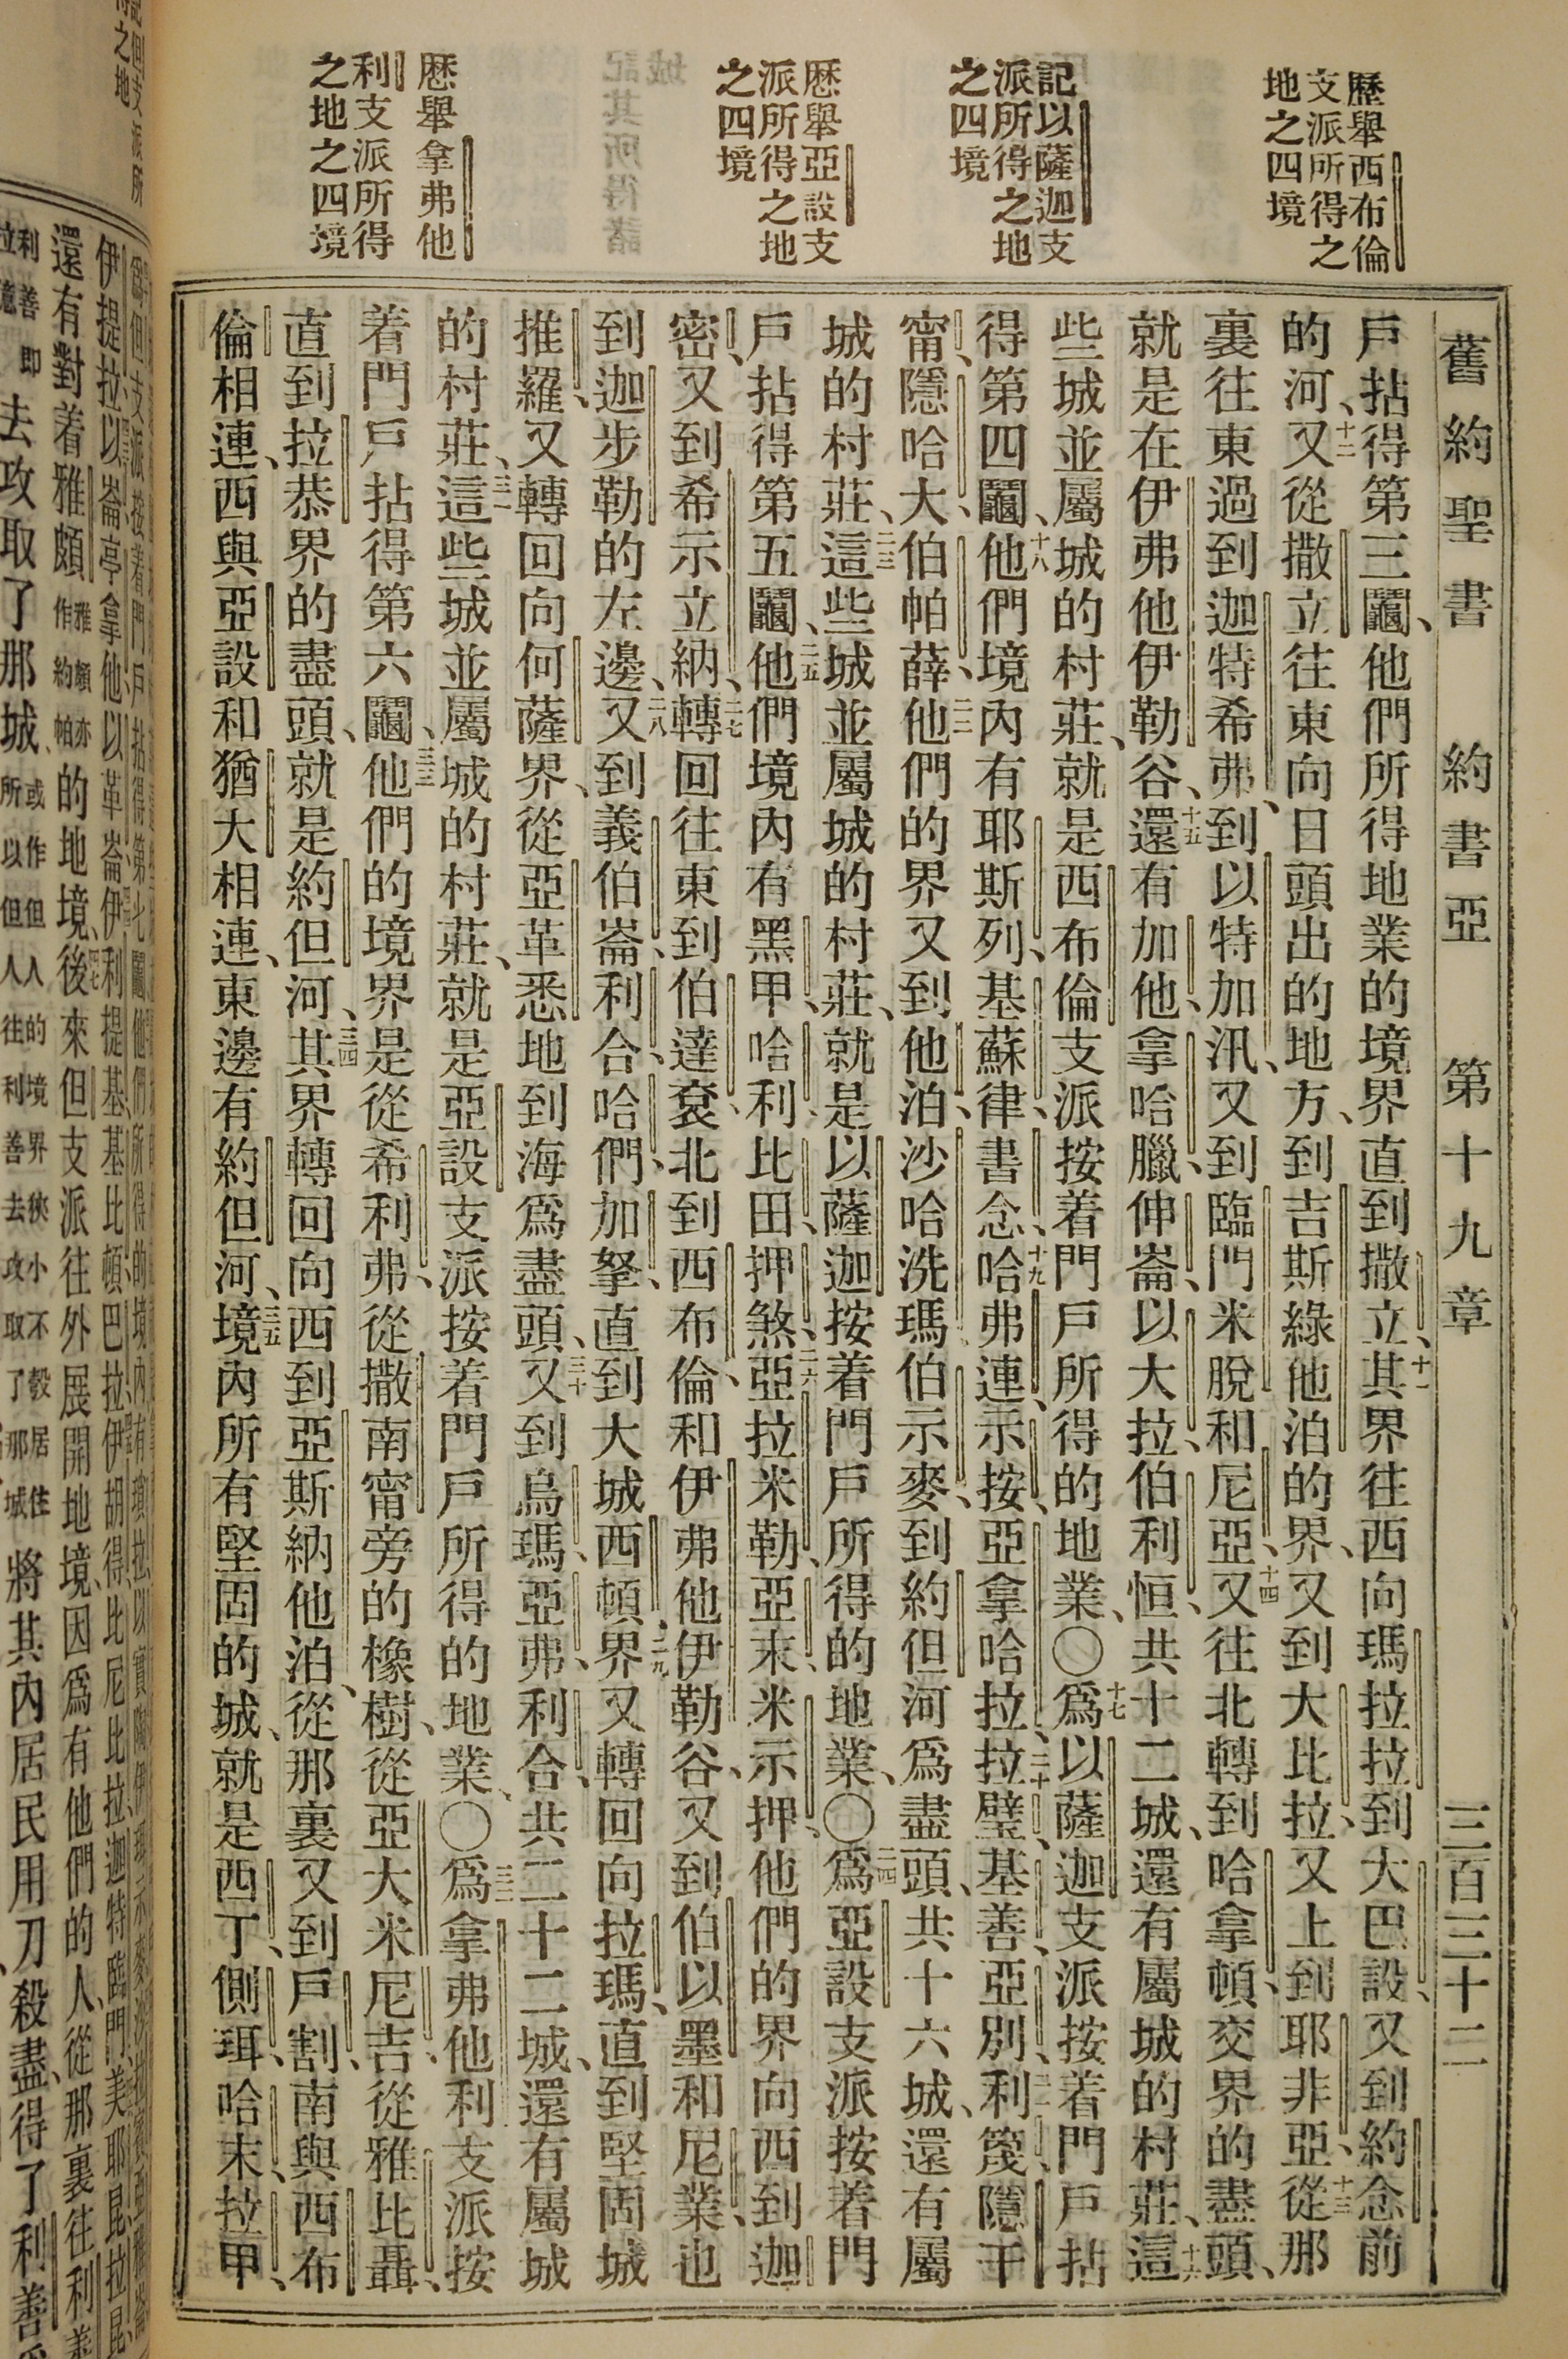 舊約聖書 約書亞 第十九章 三百三十二
歷舉西布倫
支派所得之
地之四境
記以薩迦支
派所得之地
之四境
歷舉亞設支
派所得之地
之四境
歷舉拿弗他
利支派所得
之地之四境
戶拈得第三鬮、他們所得地業的境界直到撒立、十一其界往西向瑪拉拉到大巴設、又到約念前
的河、十二又從撒立往東向日頭出的地方、到吉斯綠他泊的界、又到大比拉、又上到耶非亞、十三從那
裏往東過到迦特希弗、到以特加汛、又到臨門米脫和尼亞、十四又往北轉到哈拿頓、交界的盡頭、
就是在伊弗他伊勒谷、十五還有加他、拿哈臘、伸崙、以大拉、伯利恒、共十二城、還有屬城的村莊、十六這
些城並屬城的村莊、就是西布倫支派按着門戶所得的地業、〇十七爲以薩迦支派按着門戶拈
得第四鬮、十八他們境內有耶斯列、基蘇律、書念、十九哈弗連、示按、亞拿哈拉、二十拉璧、基善、亞別、二一利篾、隱干
甯、隱哈大、伯帕薛、二二他們的界又到他泊、沙哈洗瑪、伯示麥、到約但河爲盡頭、共十六城、還有屬
城的村莊、二三這些城並屬城的村莊、就是以薩迦按着門戶所得的地業、〇二四爲亞設支派按着門
戶拈得第五鬮、二五他們境內有黑甲、哈利、比田、押煞、二六亞拉米勒、亞末、米示押、他們的界向西到迦
密、又到希示立納、二七轉回往東到伯達袞、北到西布倫、和伊弗他伊勒谷、又到伯以墨和尼業、也
到迦步勒的左邊、二八又到義伯崙、利合、哈們、加拏、直到大城西頓、二九界又轉回向拉瑪、直到堅固城
推羅、又轉回向何薩界、從亞革悉地到海爲盡頭、三十又到烏瑪、亞弗、利合、共二十二城、還有屬城
的村莊、三一這些城並屬城的村莊、就是亞設支派按着門戶所得的地業、〇三二爲拿弗他利支派按
着門戶拈得第六鬮、三三他們的境界是從希利弗、從撒南甯旁的橡樹、從亞大米尼吉、從雅比聶、
直到拉恭界的盡頭、就是約但河、三四其界轉回向西到亞斯納他泊、從那裏又到戶割、南與西布
倫相連、西與亞設和猶大相連、東邊有約但河、三五境內所有堅固的城、就是西丁、側珥、哈末、拉甲、
還有對着雅頗
的地境、後來但支派往外展開地境、因爲有他們的人從那裏往利善
去攻取了那城
將其內居民用刀殺盡、得了利善